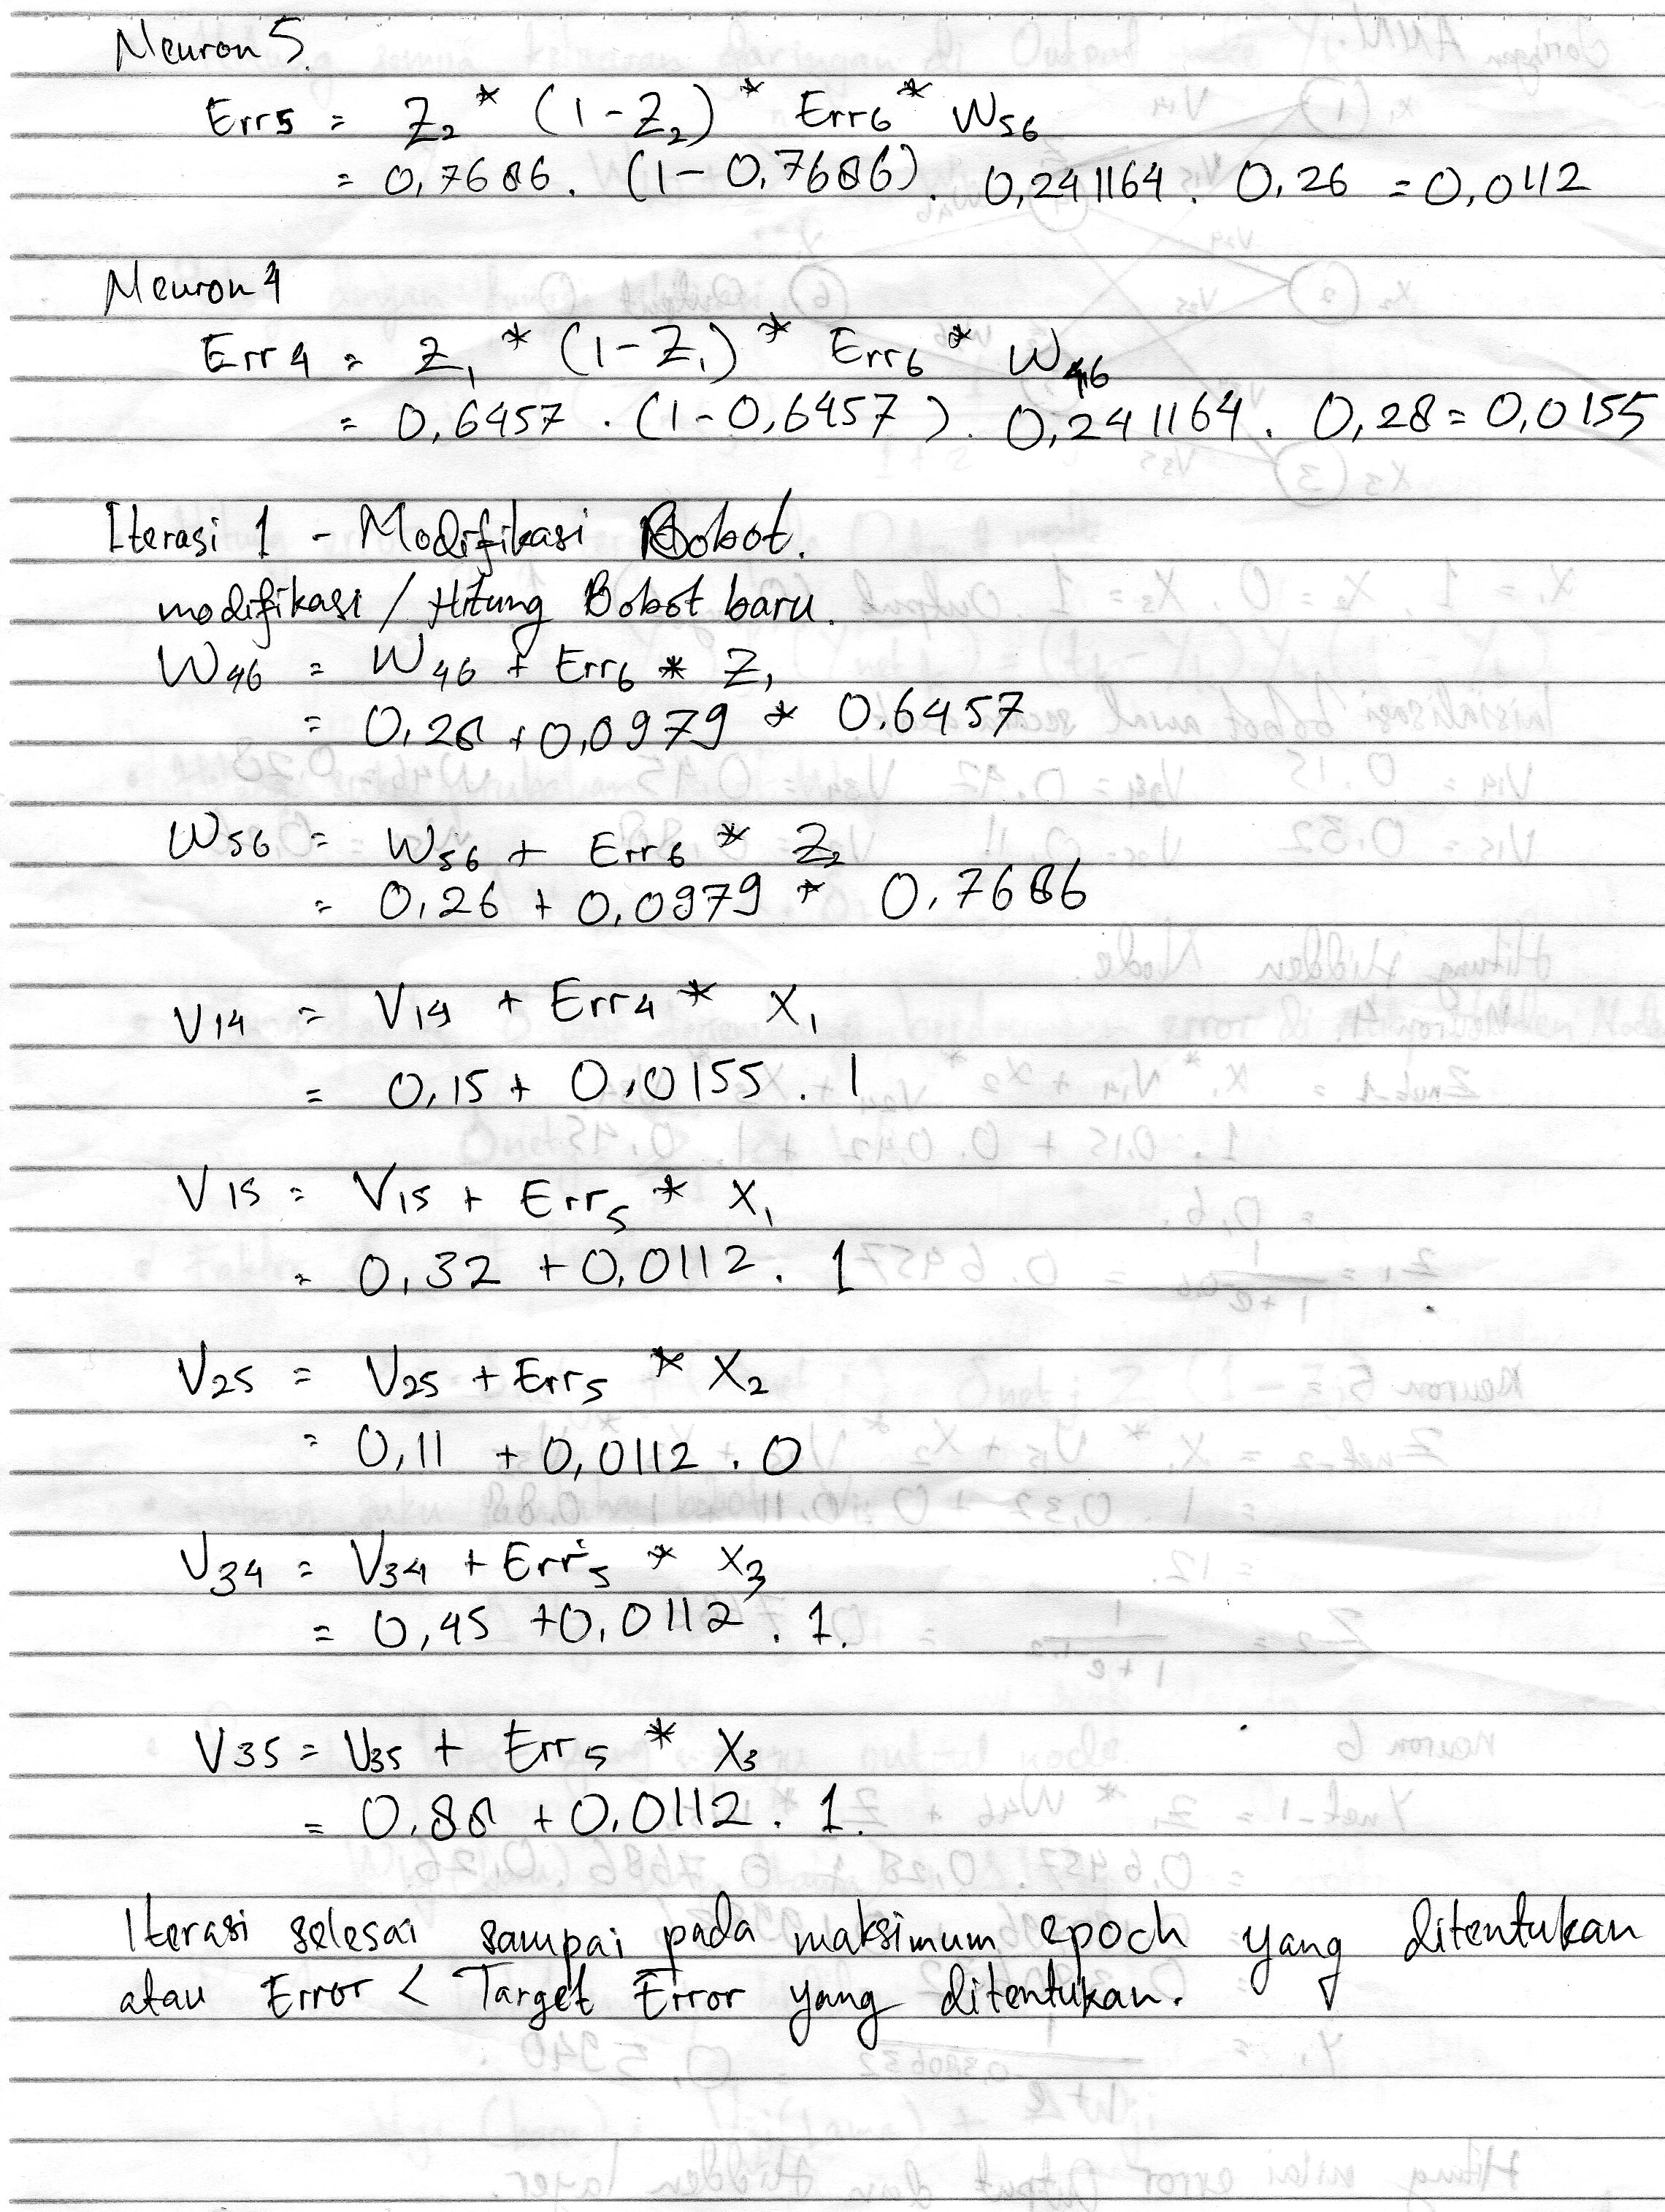 Neuron 5
Err5 = Z₂ * (1-Z₂) * Err6 * W56
= 0,7686 . (1-0,7686) . 0,241164 . 0,26 = 0,0112
Neuron 4
Err4 = Z₁ * (1-Z₁) * Err6 * W46
= 0,6457 . (1-0,6457) . 0,241164 . 0,28 = 0,0155
Iterasi 1 - Modifikasi Bobot.
modifikasi / Hitung Bobot baru.
W46 = W46 + Err6 * Z₁
= 0,28 + 0,0979 * 0.6457
W56 = W56 + Err6 * Z₂
= 0,26 + 0,0979 * 0,7686
V14 = V14 + Err4 * X₁
= 0,15 + 0,0155 . 1
V15 = V15 + Err5 * X₁
= 0,32 + 0,0112 . 1
V25 = V25 + Err5 * X2
= 0,11 + 0,0112 . 0
V34 = V34 + Err5 * X3
= 0,45 + 0,0112 . 1.
V35 = V35 + Err5 * X3
= 0.88 + 0.0112 . 1.
Iterasi selesai sampai pada maksimum epoch yang ditentukan
atau Error < Target Error yang ditentukan.